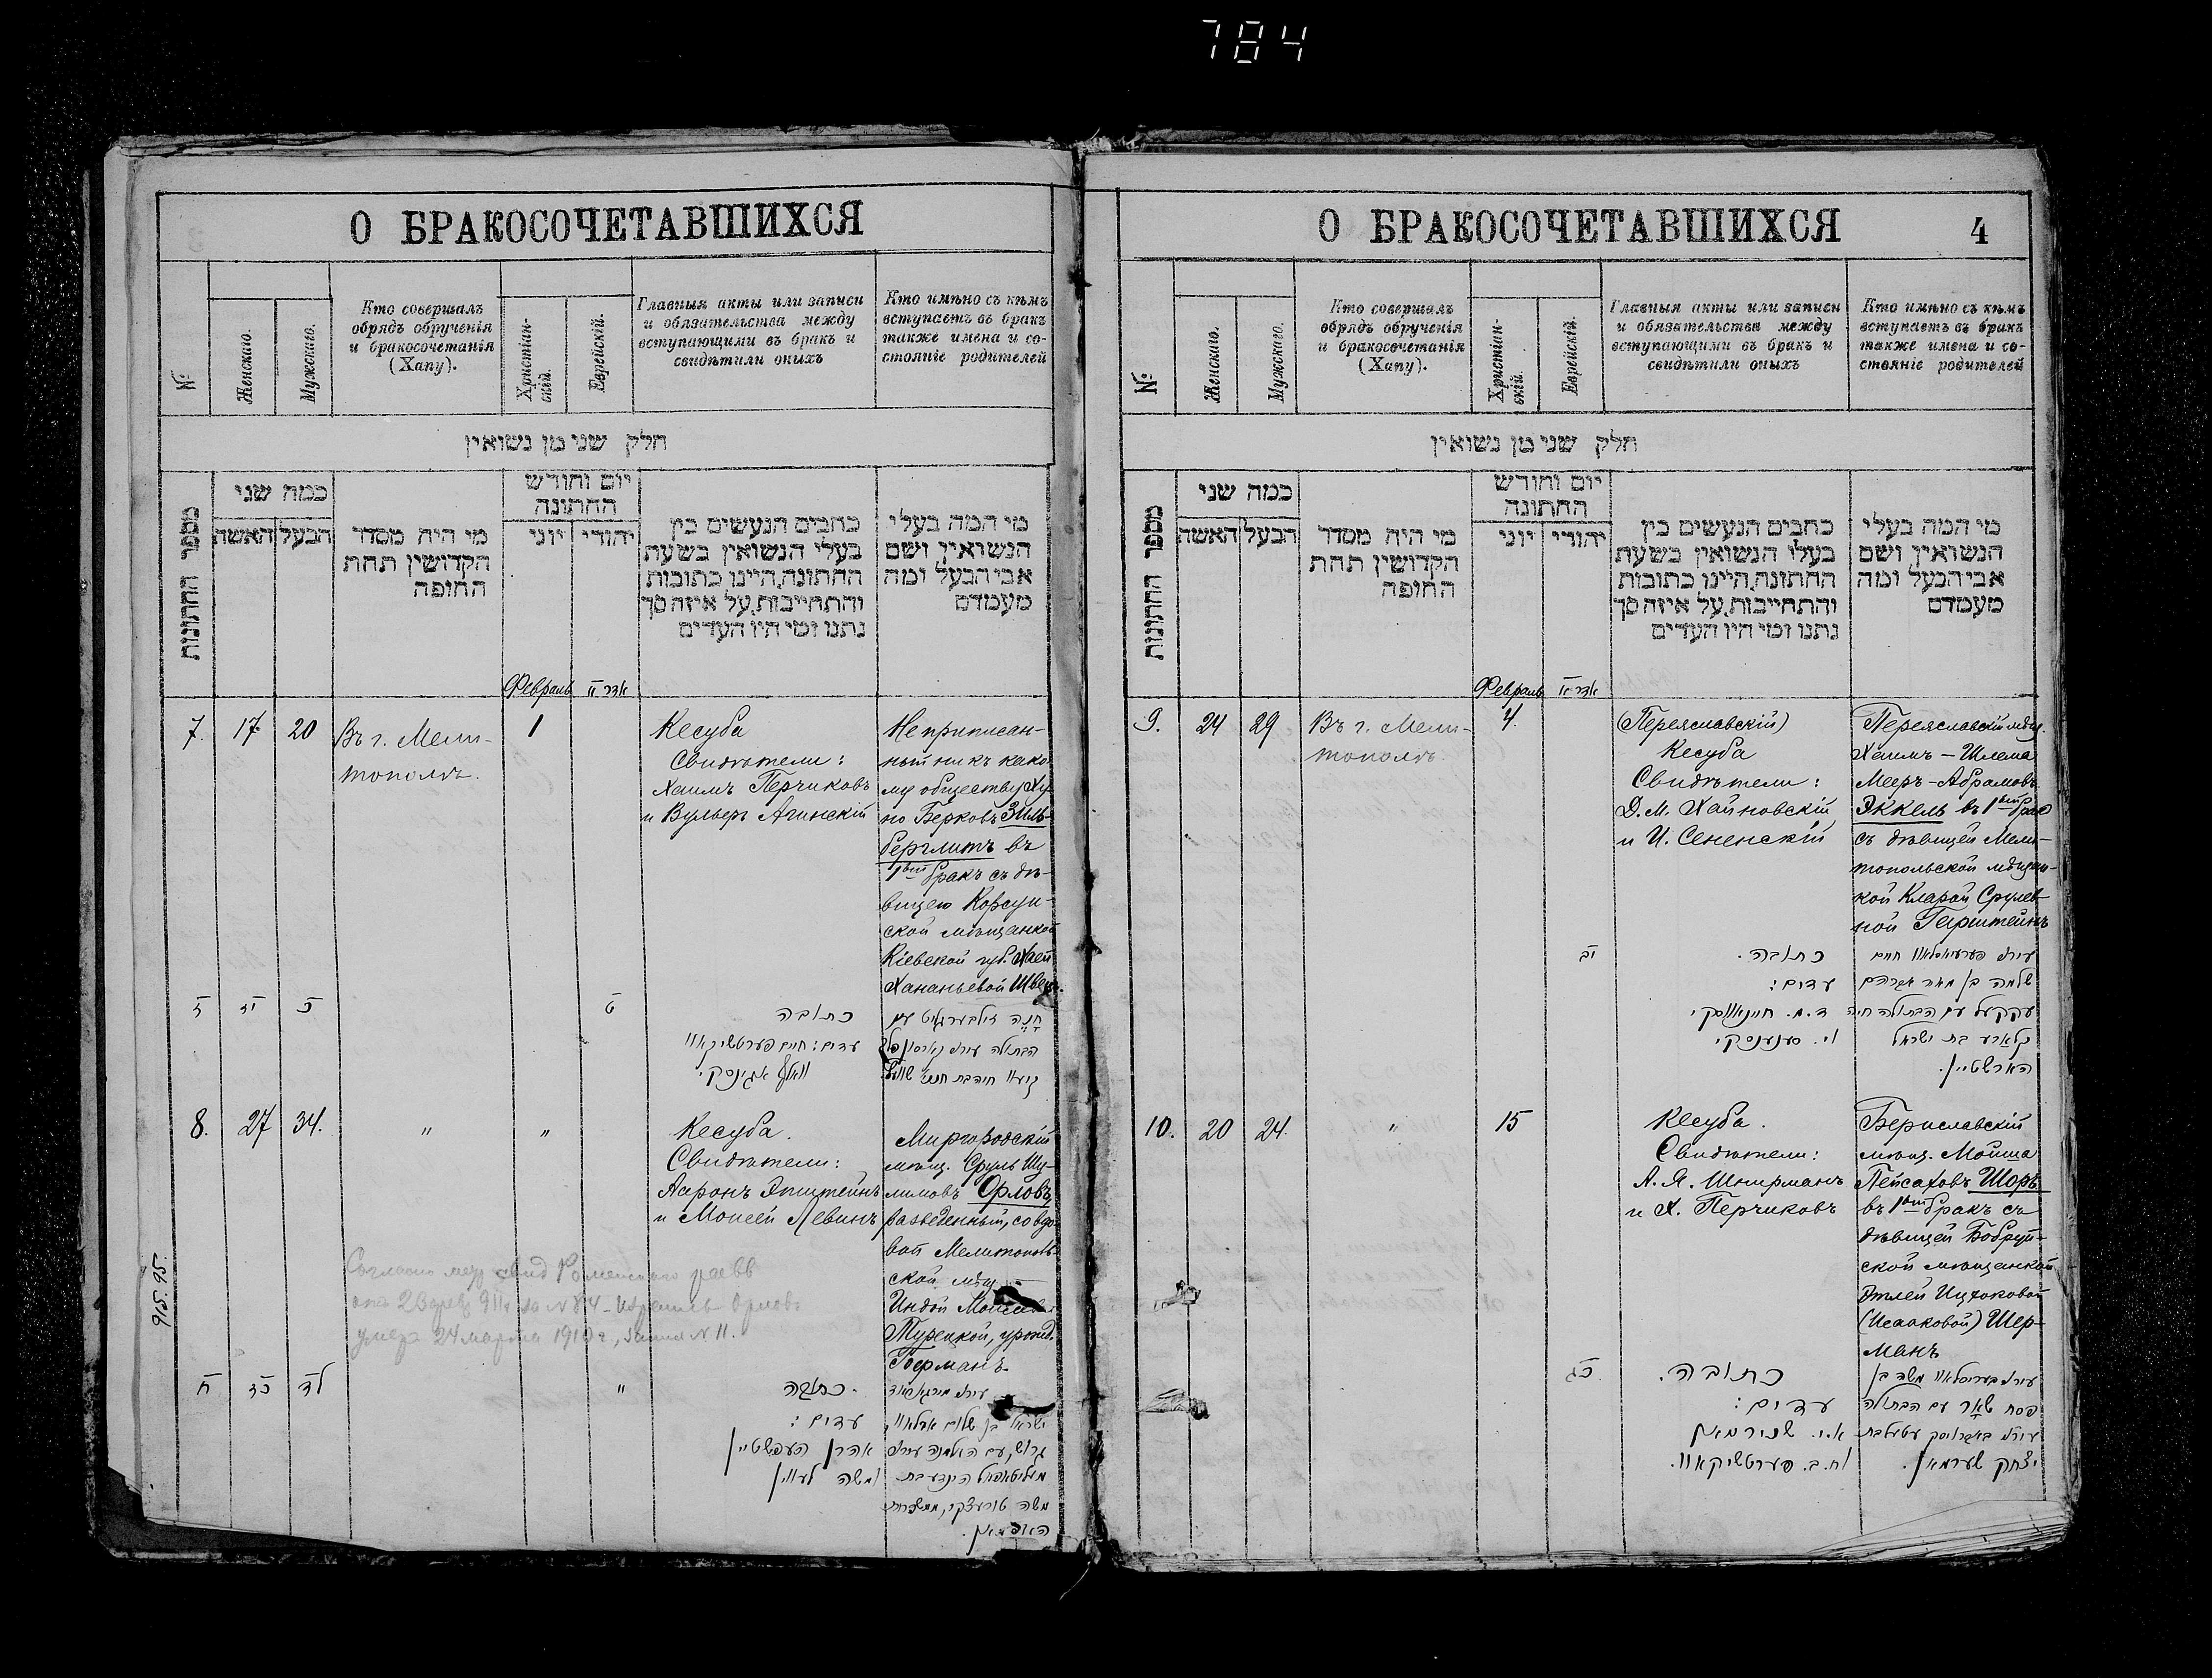 784
О БРАКОСОЧЕТАВШИХСЯ
№
Женскаго.
Мужскаго.
Кто совершалъ
обрядъ обрученія
и бракосочетанія
(Хапу).
Христіан-
скій.
Еврейскій.
Главныя акты или записи
и обязательства между
вступающими въ бракъ и
свидѣтили оныхъ
Кто имѣно съ кѣмъ
вступаетъ въ бракъ
также имена и со-
стояніе родителей
חלק שני מן נשואין
מספר החתונות
כמה שני
האשה
הבעל
מי היה מסדר
הקדושין תחת
החופה
יום וחודש
החתונה
יוני
יהודי
כתבים הנעשים בין
בעלי הנשואין בשעת
החתונה, היינו כתובות
והתחייבות, על איזה סך
נתנו ומי היו העדים
מי המה בעלי
הנשואין ושם
אבי הבעל ומה
מעמדם
Февраль
אדר II
7.
17
20
Въ г. Мели-
тополѣ.
1
Кесуба
Свидѣтели:
Хаимъ Перчиковъ
и Вульфъ Агинскій
Неприписан-
ный ни къ како
му обществу Ху
но Берковъ Зиль-
берглитъ въ
1вый бракъ съ дѣ-
вицею Корсун-
ской мѣщанкой
Кіевской губ. Хаей
Хананьевой
ז
יז
כ
ט
כתובה
עדים: חיים פערטשיקאוו
וואלף אגינסקי
8.
27
34.
"
"
Кесуба.
Свидѣтели:
Ааронъ Эпштейнъ
и Моисей Левинъ
Миргородскій
мѣщ. Сруль Шу-
лимовъ Орловъ
разведенный, со вдо-
вой Мелитополь-
ской мѣщ.
Индой
Турецкой, урожд.
915. 95.
умеръ 24 марта 1910 г., запись № 11.
ח
כז
לד
"
כתובה
עדים:
אהרן העפשטיין
ומשה לעווין
ישראל בן שלום ארלאוו,
גרוש, עם האלמנה עירא
משה טורעצקי,
О БРАКОСОЧЕТАВШИХСЯ
4
№
Женскаго.
Мужскаго.
Кто совершалъ
обрядъ обрученія
и бракосочетанія
(Хапу).
Христіан-
скій.
Еврейскій.
Главныя акты или записи
и обязательства между
вступающими въ бракъ и
свидѣтили оныхъ
Кто имѣно съ кѣмъ
вступаетъ въ бракъ
также имена и со-
стояніе родителей
חלק שני מן נשואין
מספר החתונות
כמה שני
האשה
הבעל
מי היה מסדר
הקדושין תחת
החופה
יום וחודש
החתונה
יוני
יהודי
כתבים הנעשים בין
בעלי הנשואין בשעת
החתונה, היינו כתובות
והתחייבות, על איזה סך
נתנו ומי היו העדים
מי המה בעלי
הנשואין ושם
אבי הבעל ומה
מעמדם
Февраль
אדר II
9.
24
29
Въ г. Мели-
тополѣ.
4.
(Переяславскій)
Кесуба
Свидѣтели:
Д. М. Хайновскій
и И. Сененскій
Переяславскій мѣщ.
Хаимъ-Шлема
Мееръ-Абрамовъ
Эккель въ 1вый бракъ
съ дѣвицей Мели-
топольской мѣщан-
кой Кларой Срулев-
ной Гарштейнъ
יב
כתובה.
עדים:
ד. מ. חיינאווסקי
וי. סענענסקי
שלמה בן מאיר אברהם
עקקעל עם הבתולה חיה
קלארע בת ישראל
הארשטיין.
10.
20
24.
"
15
Кесуба.
Свидѣтели:
А. Я. Шнирманъ
и Х. Перчиковъ
Бериславскій
мѣщ. Мойша
Пейсаховъ Шоръ
въ 1вый бракъ съ
дѣвицей Бобруй-
ской мѣщанкой
Этлей Ицхоковой
(Исааковой) Шер-
манъ
כג
כתובה.
עדים:
א. י. שנירמאן
וח. ב. פערטשיקאוו.
פסח שאר עם הבתולה
יצחק שערמאן.